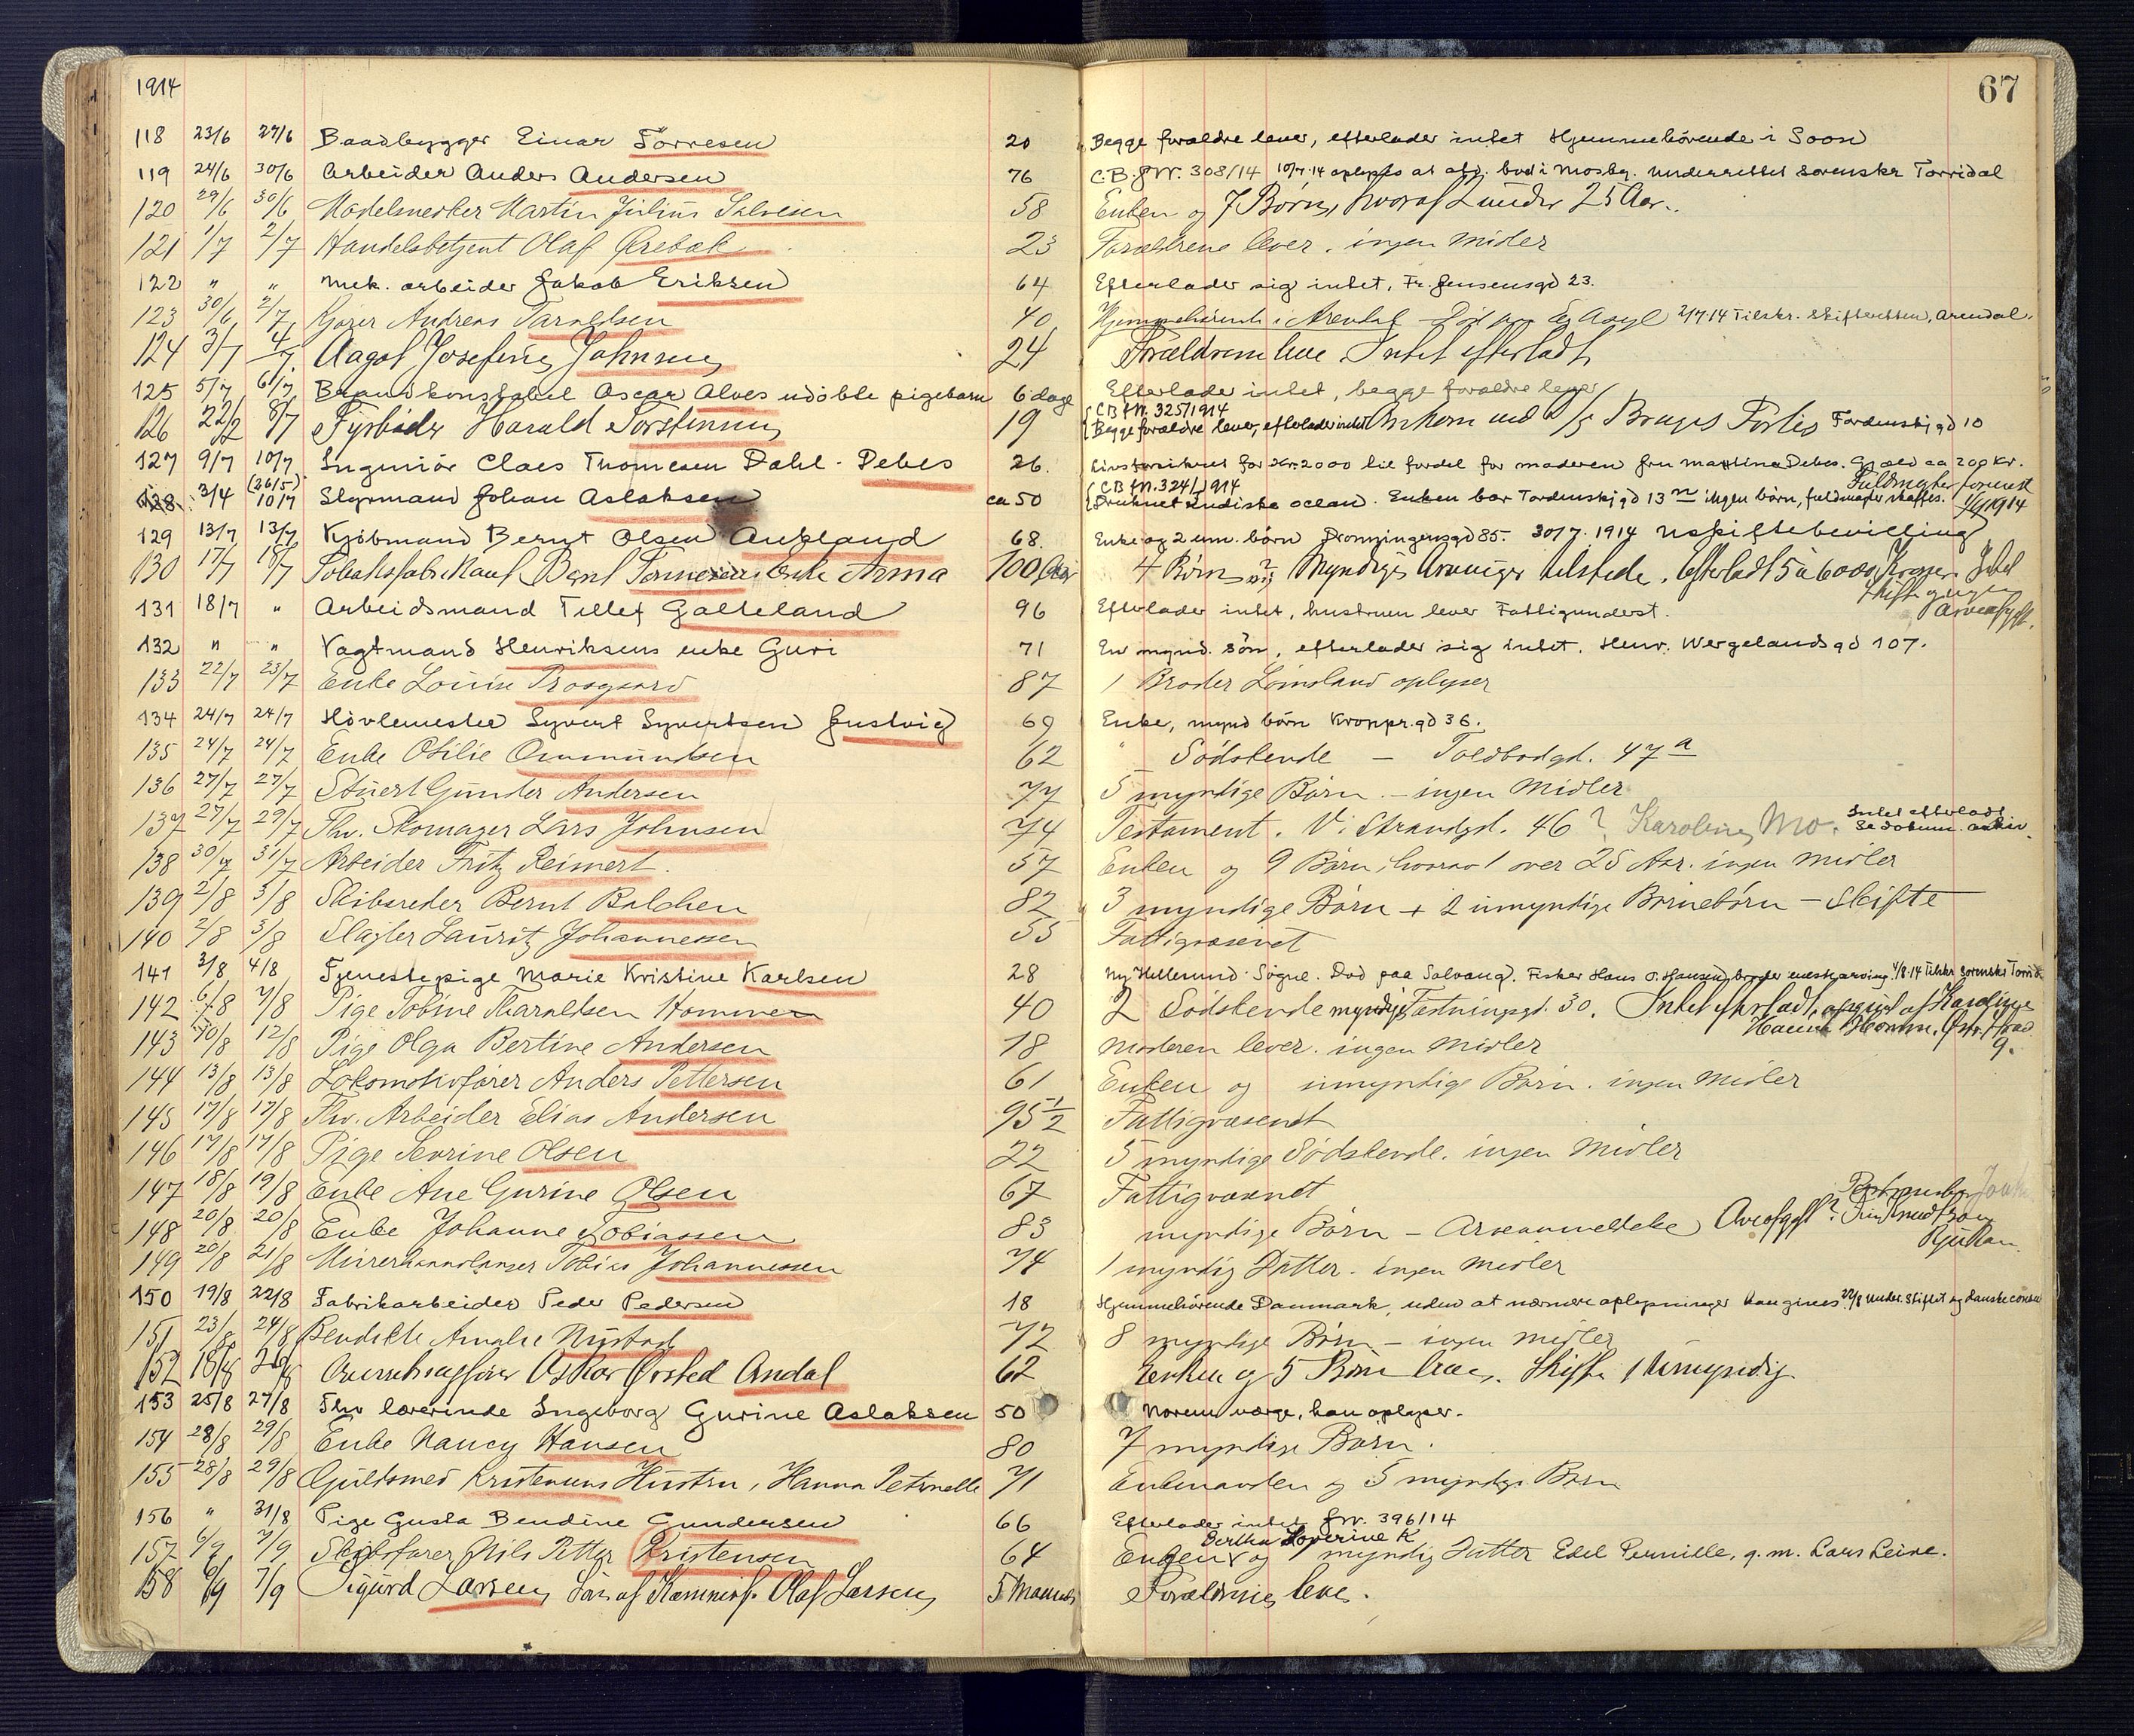 1914
67
118 23/6 27/6 Baadbygger Einar Torresen 20 Begge forældre lever, efterlader intet Hjemmehörende i Soon
119 24/6 30/6 Arbeider Anders Andersen 76 C.B. J.Nr. 308/14 10/7.14 oplyses at afd. bod i Mosby. Underrettet Sorenskr Torridal
120 29/6 30/6 Martin Julius Salvesen 58 Enken og 7 Börn, hvoraf 2 under 25 Aar.
121 1/7 2/7 Handelsbetjent Olaf Örebæk 23 Forældrene lever. ingen Midler
122 " " Mek. arbeider Jakob Eriksen 64 Efterlader sig intet. Fr. Jensensgd 23.
123 30/6 2/7 Kjører Andreas Taraldsen 40 Hjemmehørende i Arendal Asyl 2/7 14 Tilskr. Skifteretten, Arendal.
124 3/7 4/7 Aagot Josefine Johnsen 24 Forældrene leve. Intet efterladt
125 5/7 6/7 Brandkonstabel Oscar Alves udöbte pigebarn 6 dage Efterlader intet, begge forældre lever
126 22/2 8/7 Fyrböder Harald Torstensen 19 C B J N. 325/1914
Begge forældre lever, efterlader intet Omkom med D/S Bruges Forlis Tordenskj.gd 10
127 9/7 10/7 Ingeniör Claes Thomesen Dahl-Debes 26. Livsforsikret for Kr. 2000 til fordel for moderen fru Martine Debes. Gjæld ca 200 Kr.
128 3/4 (26/5) 10/7 Styrmand Johan Aslaksen ca 50 C B J N. 324/1914
Druknet Indiske ocean. Enken bor Tordenskj.gd 13 ingen börn, fuldmagter skaffes. 1/9 1914
129 13/7 13/7 Kjöbmand Bernt Olsen Aukland 68. Enke og 2 um. börn Dronningensgd 85. 30/7. 1914 Uskiftebevilling
130 17/7 18/7 Tobaksfabrikant Bent Enke Anna 100 Aar 4 Börn Myndige Arvinger tilstede. Efterladt 5 à 6000 Kroner.
Arveafgift.
131 18/7 " Arbeidsmand Tellef Galteland 96 Efterlader intet, hustruen lever Fattigunderst.
132 " " Vagtmand Henriksens enke Guri 71 En mynd. sön, efterlader sig intet. Henr. Wergelandsgd 107.
133 22/7 23/7 Enke Louise Prosgaard 87 1 Broder Lömsland oplyser
134 24/7 24/7 Hövlemester Syvert Syvertsen Justvig 69 Enke, mynd börn Kronpr.gd 36.
135 24/7 24/7 Enke Otilie Ommundsen 62 " Södskende – Toldbodgd. 47 a
136 27/7 27/7 Stuert Gunder Andersen 77 5 myndige Börn. – ingen Midler
137 27/7 29/7 Fhv. Skomager Lars Johnsen 74 Testament. V. Strandgd. 46? Karoline Mo. Intet efterladt
Se dokum. arkiv.
138 30/7 31/7 Arbeider Fritz Reimert. 57 Enken og 9 Börn, hvorav 1 over 25 Aar. ingen Midler
139 2/8 3/8 Skibsreder Bernt Balchen 82 3 myndige Börn + 2 umyndige Börnebörn – Skifte
140 2/8 3/8 Slagter Lauritz Johannessen 55 Fattigvæsenet
141 3/8 4/8 Tjenestepige Marie Kristine Karlsen 28 Ny Hellesund Søgne. Död paa Solvang. Fisker Hans O. Hansen broder enesterarving 4/8.14 Tilskr Sorenskr Torrid.
142 6/8 7/8 Pige Tobine Haraldsen Hommen 40 2 Södskende myndig Fæstningsgd. 30. Intet efterladt, opgivet af Karoline
9.
143 10/8 12/8 Pige Olga Bertine Andersen 18 Moderen lever. ingen Midler
144 13/8 13/8 Lokomotivförer Anders Pettersen 61 Enken og umyndige Börn. ingen Midler
145 17/8 17/8 Fhv. Arbeider Elias Andersen 95 1/2 Fattigvæsenet
146 17/8 17/8 Pige Severine Olsen 22 5 myndige Södskende. ingen Midler
147 18/8 19/8 Enke Ane Gurine Olsen 67 Fattigvæsenet
148 20/8 20/8 Enke Johanne Tobiassen 83 myndige Börn – Arveanmeldelse Arveafgift?
Rjukan.
149 20/8 21/8 Murerhaandlanger Tobias Johannessen 74 1 myndig Datter. ingen Midler
150 19/8 22/8 Fabrikarbeider Peder Pedersen 18 Hjemmehörende Danmark, uden at nærmere oplysninger kan gives. 22/8 Under. Skiftet og danske consul
151 23/8 24/8 Bendikte Amalie Nustad 72 8 myndige Börn – ingen midler
152 18/8 26/8 Overretssagförer Oskar Ørsted Andal 62 Enken og 5 Börn leve. Skifte 1 Umyndig
153 25/8 27/8 Fhv lærerinde Ingeborg Gurine Aslaksen 50 Norem værge, han oplyser.
154 28/8 29/8 Enke Nancy Hansen 80 7 myndige Börn.
155 28/8 29/8 Guldsmed Kristensens Hustru, Hanna Petronelle 71 Enkemanden og 5 myndige Börn
156 " 31/8 Pige Gusta Bendine Gundersen 66 Efterlader intet JNr. 396/14
157 6/9 7/9 Skibsförer Nils Petter Kristensen 64 Bertha Severine K
Enken og myndig Datter Edel Pernille, g.m. Lars Leire.
158 6/9 7/9 Sigurd Larsen, Sön af Olaf Larsen, 5 Maaneder Forældrene leve.